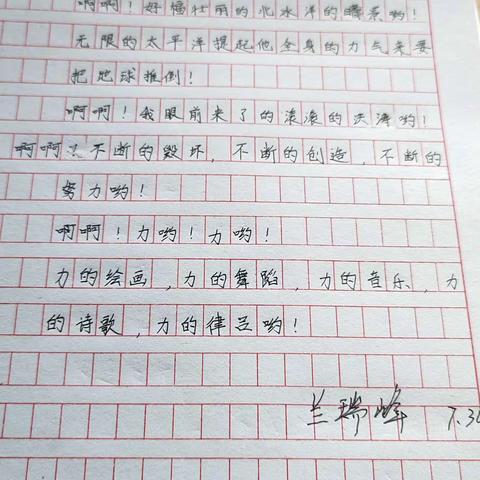 啊啊！好幅壮丽的北冰洋的晴景哟！
无限的太平洋提起他全身的力气来要
把地球推倒！
啊啊！我眼前来了的滚滚的洪涛哟！
啊啊！不断的毁坏，不断的创造，不断的
努力哟！
啊啊！力哟！力哟！
力的绘画，力的舞蹈，力的音乐，力
的诗歌，力的律吕哟！
兰瑞峰 7.30